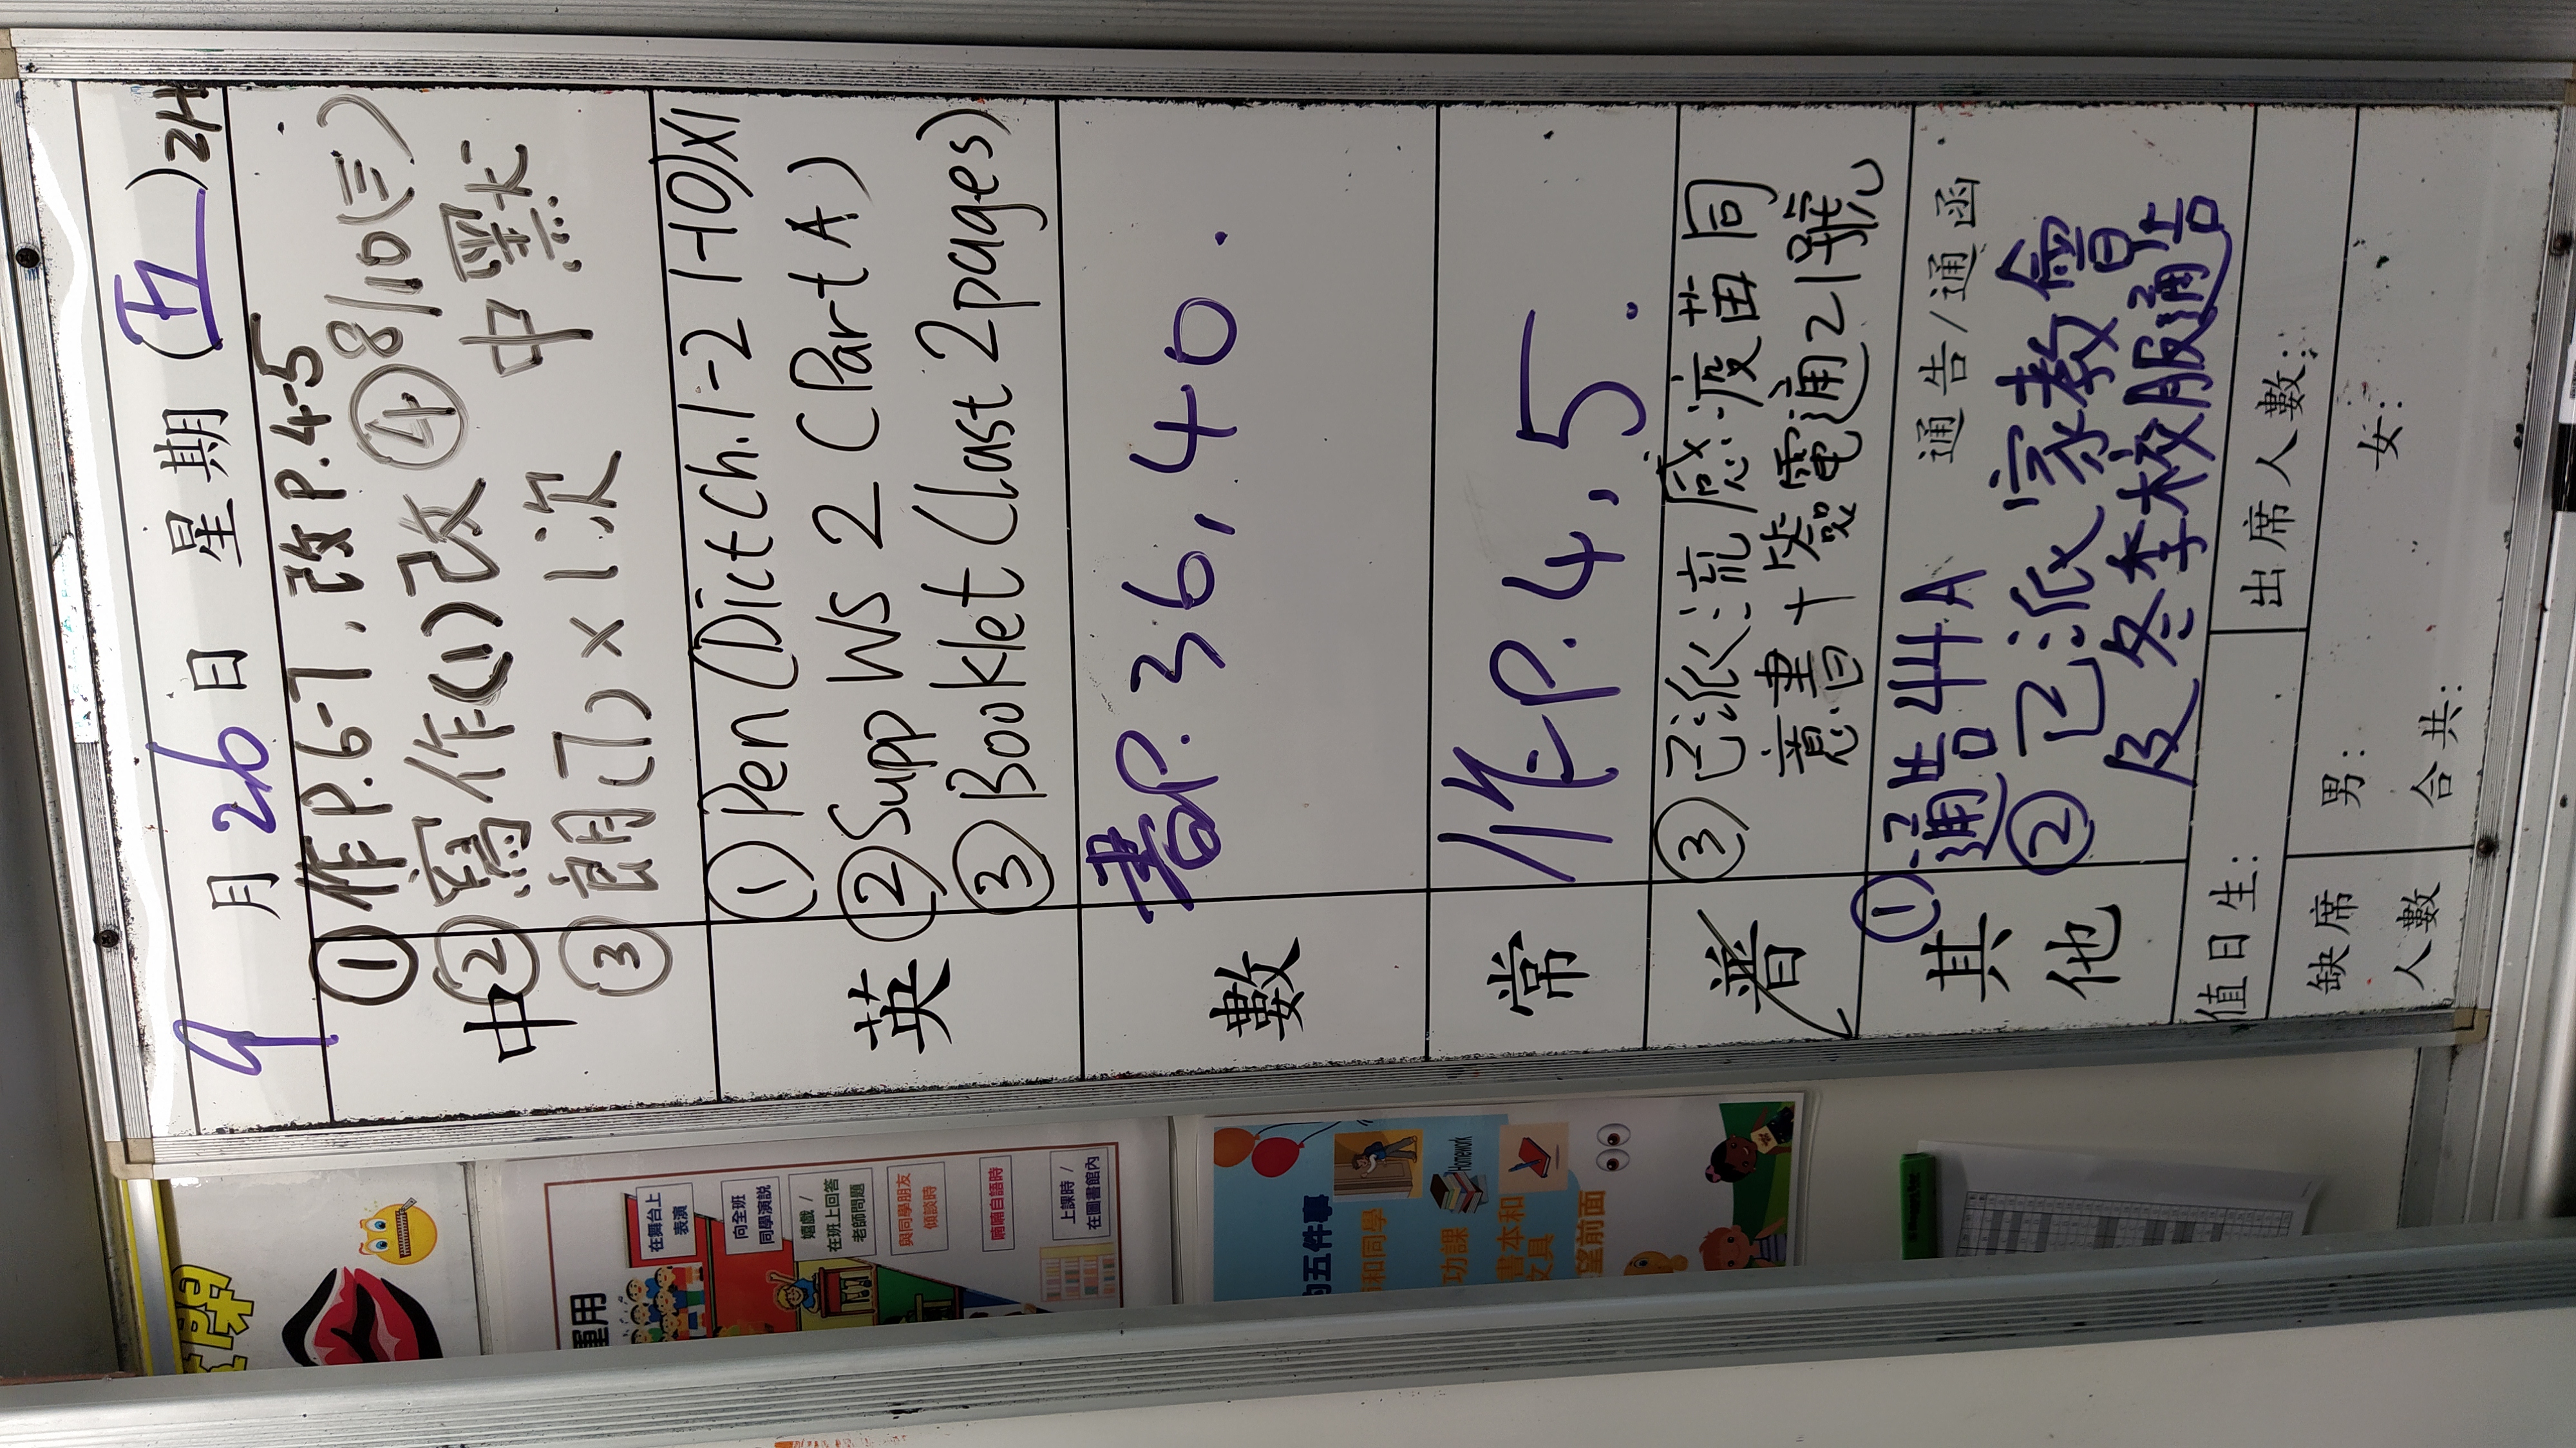 9月26日 星期(五)2H
中
①作P.6-7,改P.4-5
②寫作(1)改 ④8/10(三)
③朗(7)×1次 中默
英
①Pen(Dict Ch.1-2 1-10)X1
②Supp WS 2 (Part A)
③Booklet(last 2pages)
數
書P.36,40.
常
作P.4,5.
普
③已派流感疫苗同
意書+簽電通21號
其他
通告/通函
①通告44A
②已派家教會
及冬季校服通告
值日生:
出席人數:
缺席人數
男:
女:
合共:
運用
在舞台上
表演
向全班
同學演說
嬉戲/
在班上回答
老師問題
與同學朋友
傾談時
喃喃自語時
上課時/
在圖書館內
的五件事
和同學
Homework
功課
書本和
文具
望前面